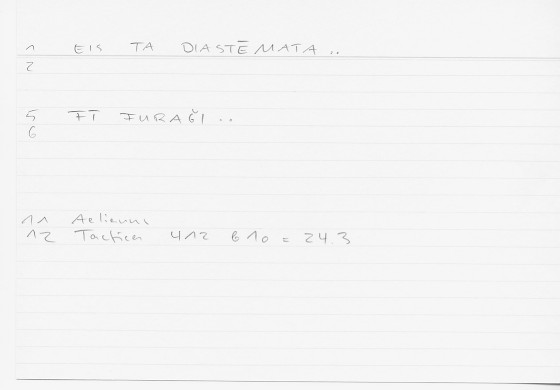 1 EIS TA DIASTĒMATA ..
2
5 FĪ FURAǦI ..
6
11 Aelianus
12 Tactica 412 b 10 = 24.3